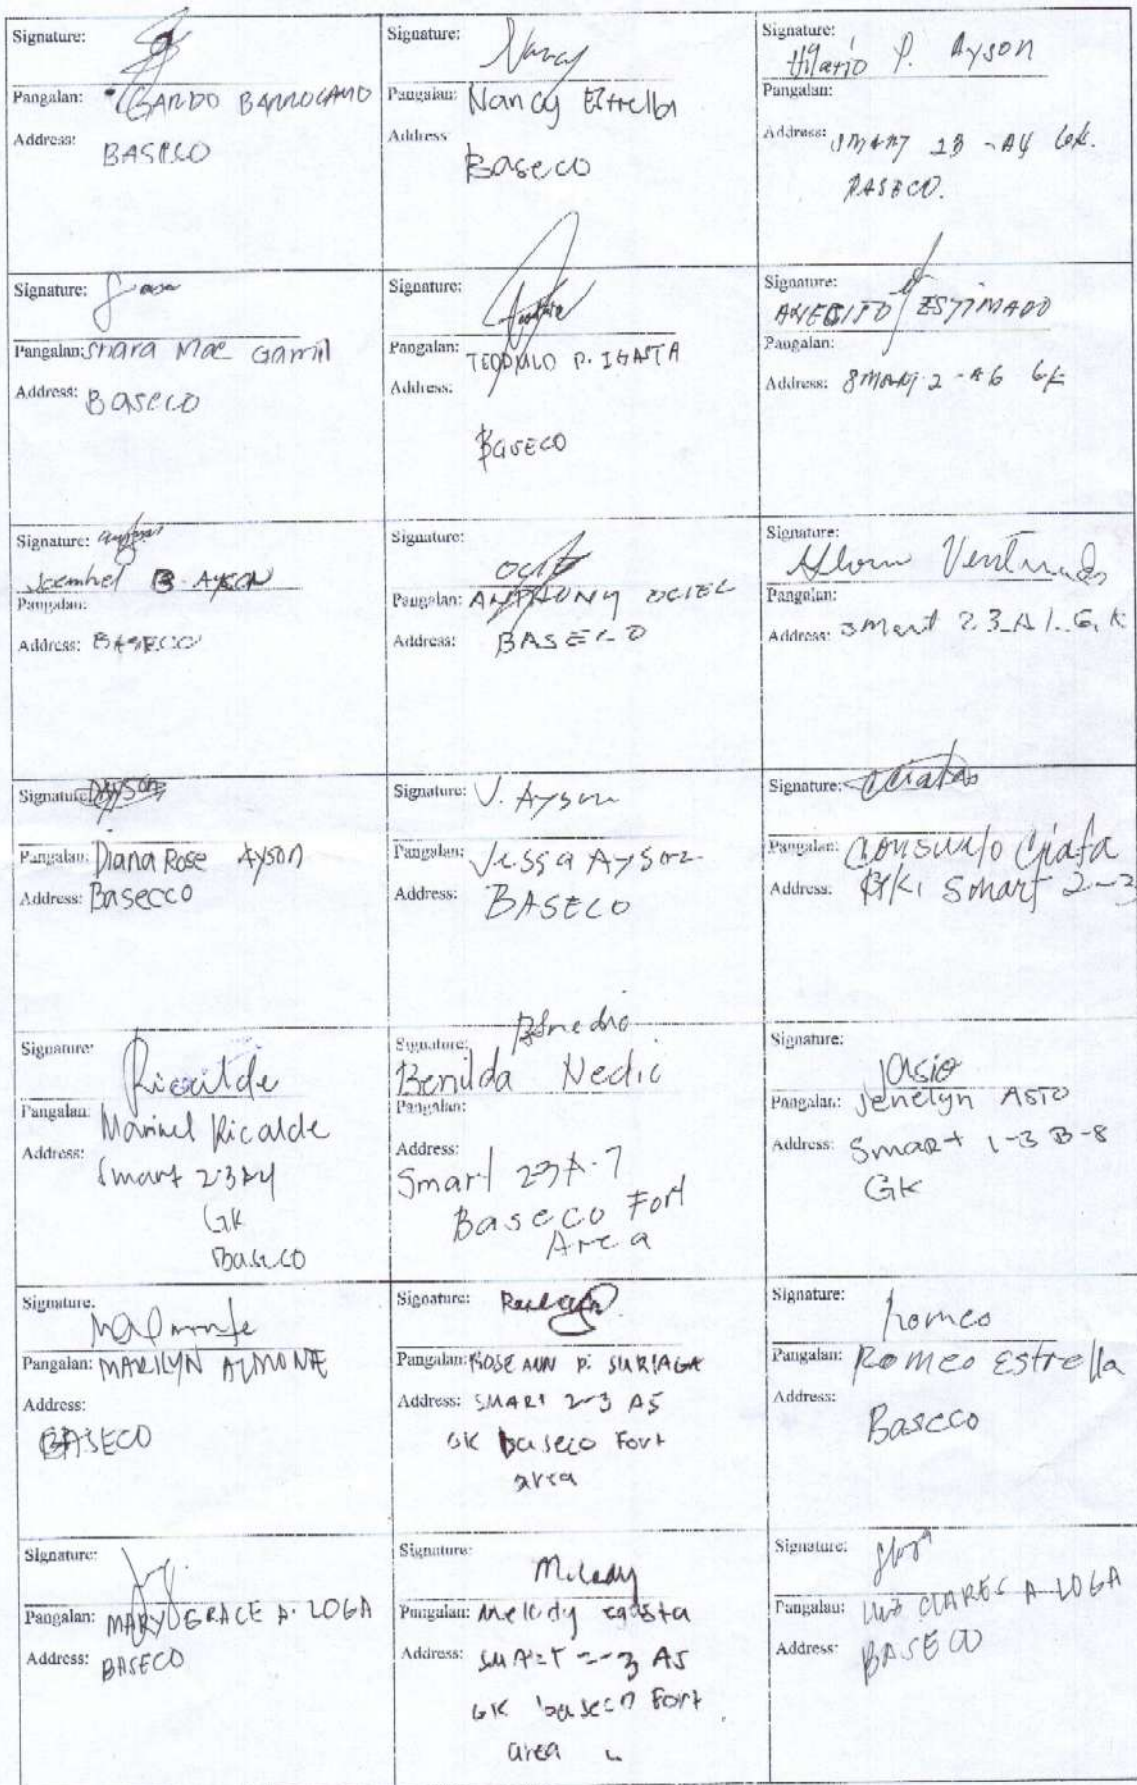 Signature:
Pangalan: GARDO BARROCANO
Address:
BASECO
Signature: Nancy
Pangalan: Nancy Estrella
Address
Baseco
Signature:
Hilario P. Ayson
Pangalan:
Address: SMART 23 -A4 GK.
BASECO.
Signature:
Pangalan: Shara Mae Gamil
Address: BASECO
Signature:
Pangalan: TEODULO P. IGASTA
Address:
Baseco
Signature:
ANECITO ESTIMADO
Pangalan:
Address: SMART 2 -A6 GK
Signature:
B. AYSON
Pangalan:
Address: BASECO
Signature:
Pangalan: ANTHONY OCIEL
Address: BASECO
Signature:
Ventura
Pangalan:
Address: SMart 2 3_A 1_G, K
Signature: DAyson
Pangalan: Diana Rose Ayson
Address: Basecco
Signature: V. Ayson
Pangalan: Jessa Ayson
Address: BASECO
Signature:
Pangalan: Consuelo Ciafa
Address: GK, Smart 2-3
Signature: Ricalde
Pangalan:
Marivel Ricalde
Address:
Smart 2-3 A4
GK
Baseco
Signature:
Benilda Nedic
Pangalan:
Address:
Smart 2-3 A-7
Baseco Fort
Area
Signature:
Pangalan: Jenelyn ASIO
Address: Smart 1-3 B-8
GK
Signature.
Pangalan: MARILYN ALMONTE
Address:
BASECO
Signature:
Pangalan: ROSE ANN P. SURIAGA
Address: SMART 2-3 A5
GK baseco Fort
area
Signature: Romeo
Pangalan: Romeo Estrella
Address:
Baseco
Signature:
Pangalan: MARY GRACE A. LOGA
Address: BASECO
Signature: Melody
Pangalan: Melody egasta
Address: SMART 2-3 A5
GK baseco Fort
area
Signature:
Pangalan: CLARES A LOGA
Address: BASECO